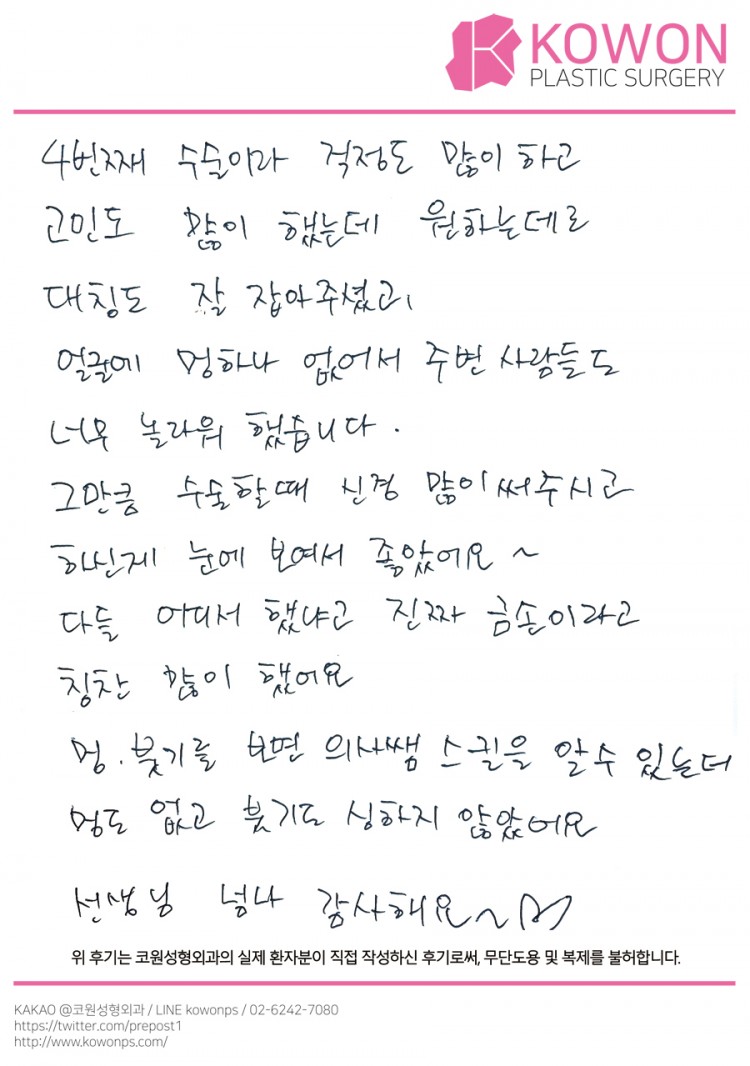 KOWON
PLASTIC SURGERY
4번째 수술이라 걱정도 많이 하고
고민도 많이 했는데 원하는데로
대칭도 잘 잡아주셨고,
얼굴에 멍하나 없어서 주변 사람들도
너무 놀라워 했습니다.
그만큼 수술할때 신경 많이써주시고
하신게 눈에 보여서 좋았어요~
다들 어디서 했냐고 진짜 금손이라고
칭찬 많이 했어요
멍.붓기를 보면 의사쌤 스킬을 알수 있는데
멍도 없고 붓기도 심하지 않았어요
선생님 넘나 감사해요~
위 후기는 코원성형외과의 실제 환자분이 직접 작성하신 후기로써, 무단도용 및 복제를 불허합니다.
KAKAO @코원성형외과 / LINE kowonps / 02-6242-7080
https://twitter.com/prepost1
http://www.kowonps.com/